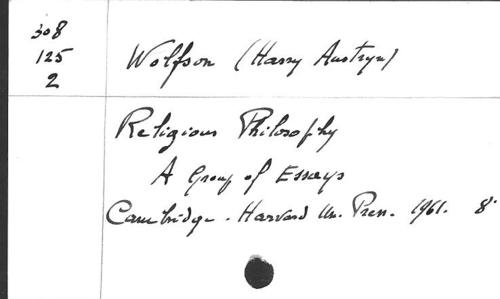 308
125
2
Wolfson (Harry Austryn)
Religious Philosophy
A Group of Essays
Cambridge. Harvard Un. Press. 1961. 8°